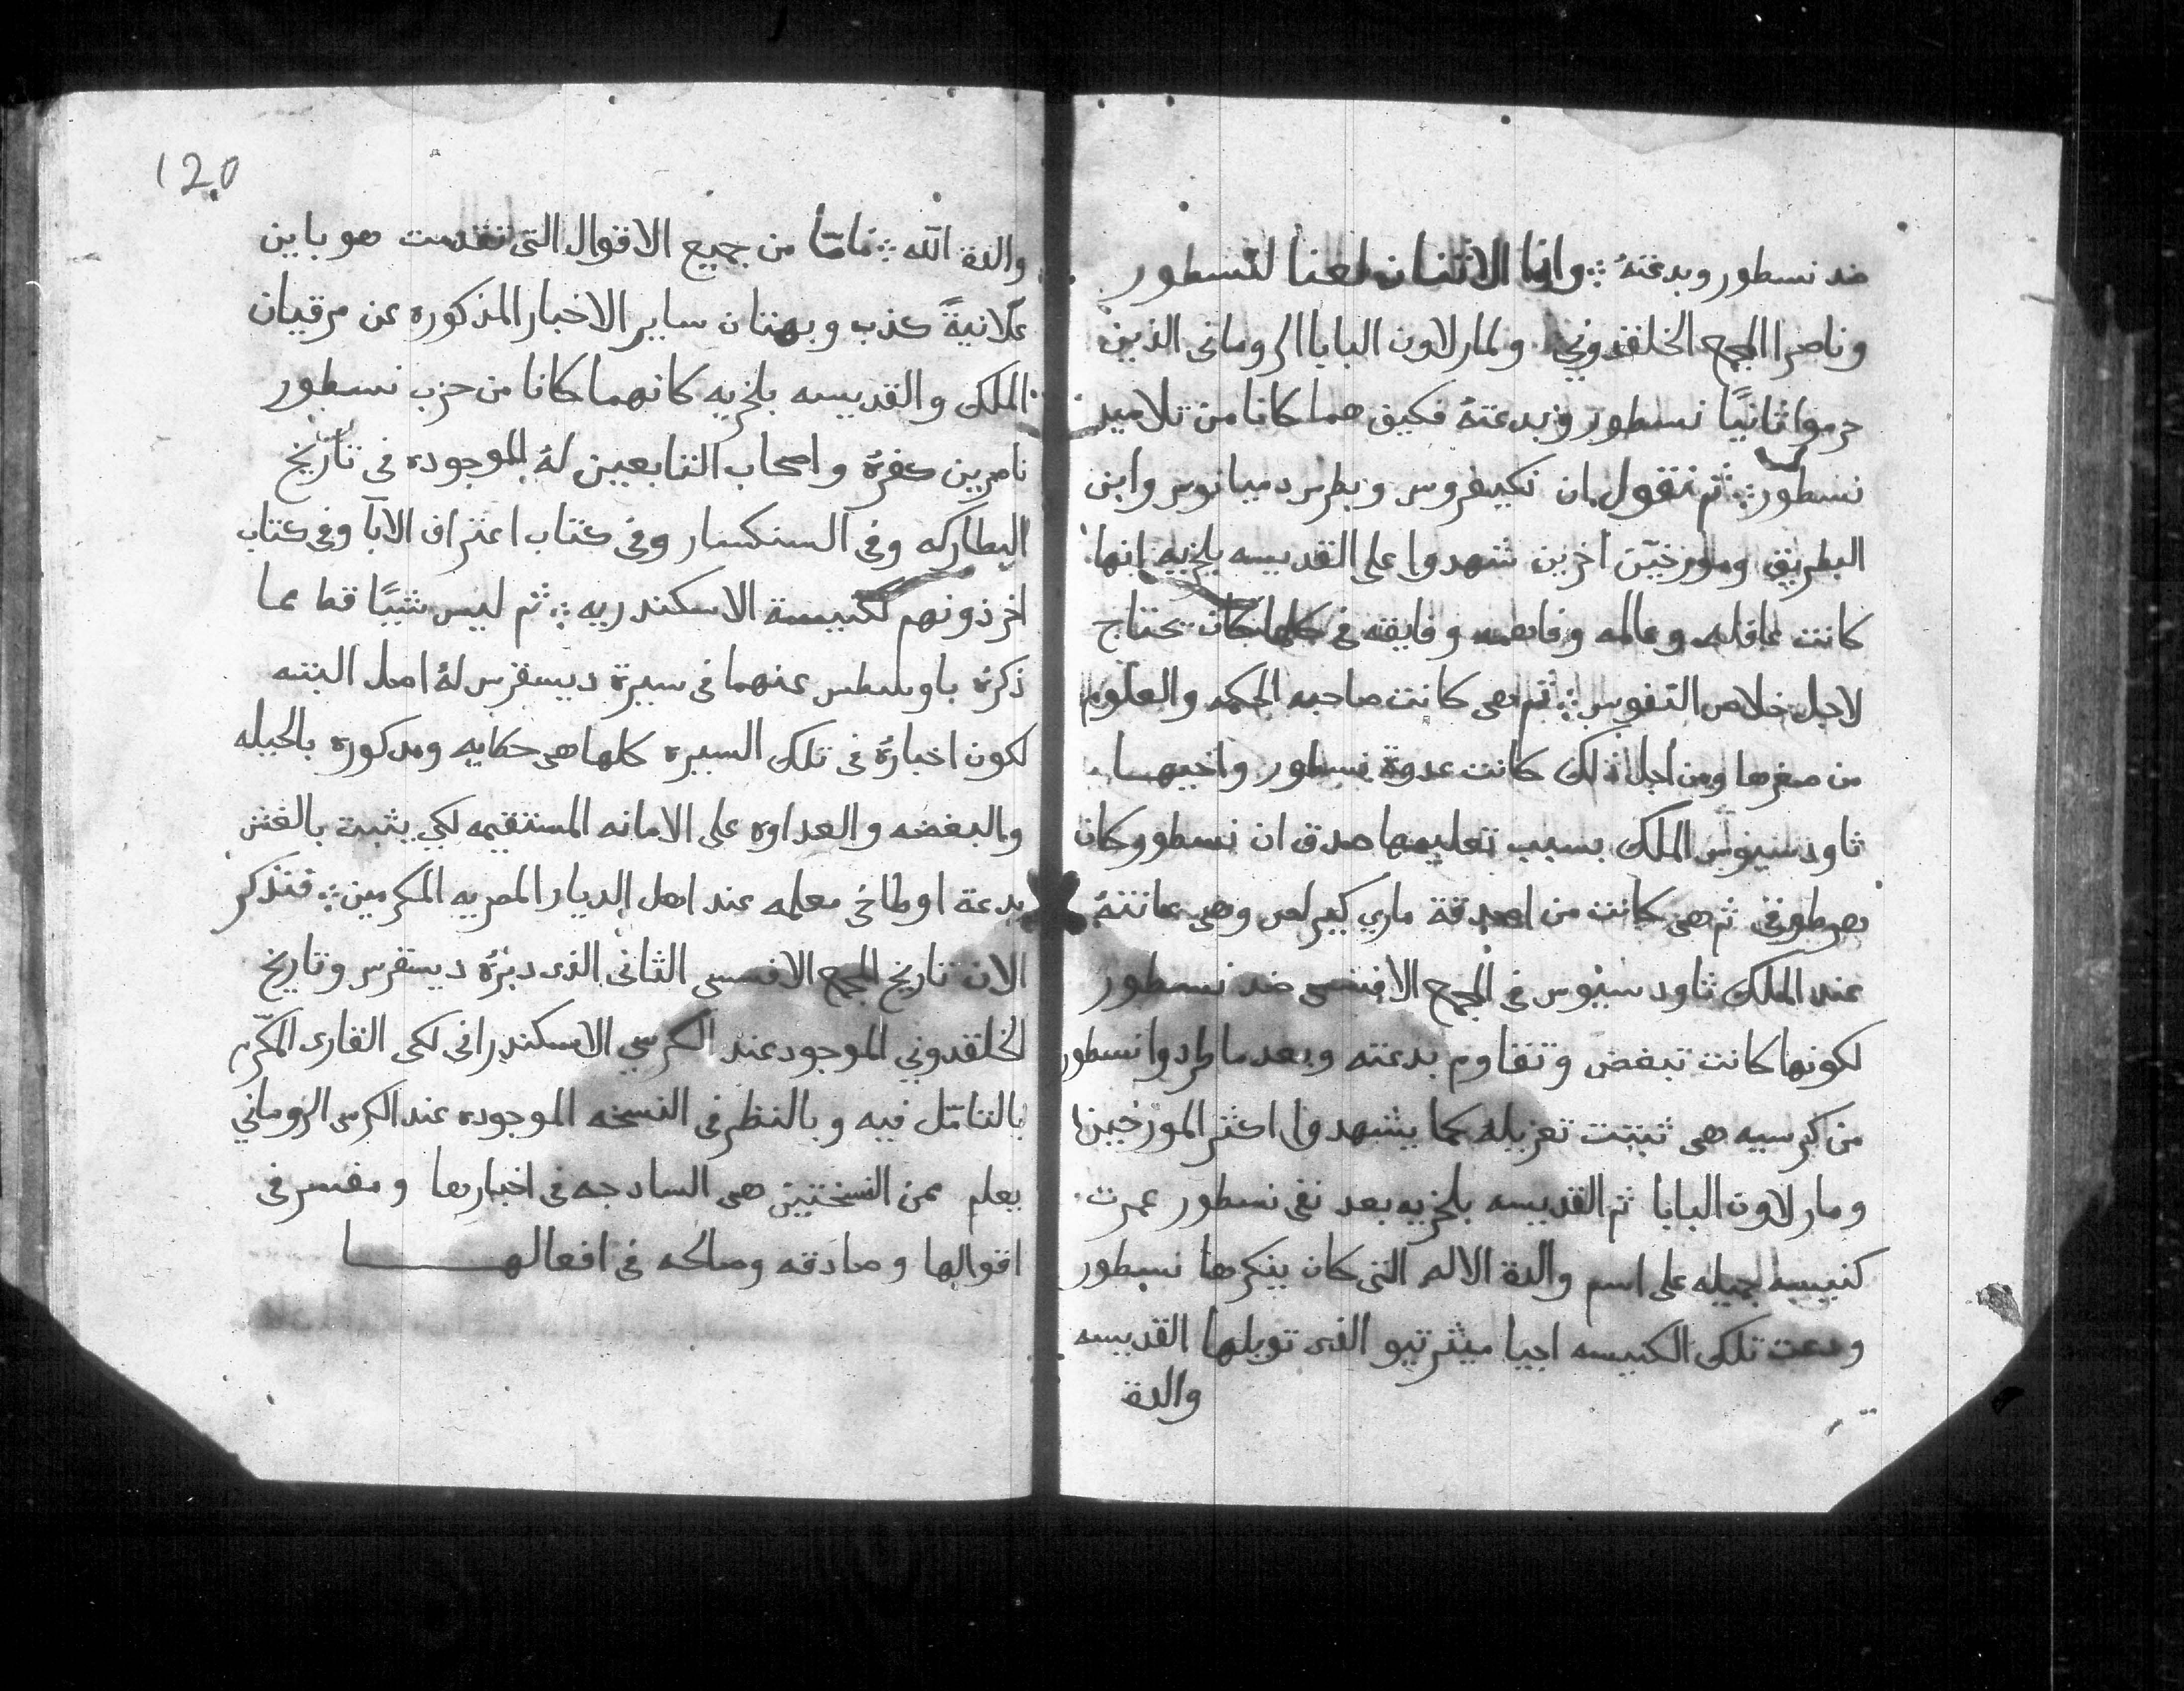 ضد نسطور وبدعتهُ ؞ وانا الاثنان لعنا لنسطور
وناصرا المجمع الخلقدوني ولمار لاون البابا الروماني الذين
حرموا ثانيًا نسطور وبدعتهُ فكيف هما كانا من تلاميد
نسطور ؞ ثم نقول ان نكيفروس وبطرس دميانوس وابن
البطريق ومورخين اخرين شهدوا على القديسه بلخريه انها
كانت عاقله وعالمه وفاهمه وفايقه في كلما كان تحتاج
لاجل خلاص النفوس ؞ ثم هى كانت صاحبه الحكمه والعلوم
من صغرها ومن اجل ذلك كانت عدوة نسطور واخيها
تاودسيوس الملك بسبب تعليمها صدق ان نسطور كان
هرطوقى ثم هى كانت من اصدقة ماري كيرلص وهى عانتهُ
عند الملك تاودسيوس فى المجمع الافسسى ضد نسطور
لكونها كانت تبغض وتقاوم بدعته وبعد ما طردوا نسطور
من كرسيه هى ثبتت تعزيله كما يشهدوا اكثر المورخين
ومار لاون البابا ثم القديسه بلخريه بعد نفى نسطور عمرت
كنيسه جميله على اسم والدة الاله التى كان ينكرها نسطور
ودعت تلك الكنيسه اجيا ميثرتيو الذى توبلها القديسه
والدة
120
والدة اللّه ؞ فامّا من جميع الاقوال التى تقدمت هو باين
علانيةً كذب وبهتان ساير الاخبار المذكوره عن مرقيان
الملك والقديسه بلخريه كانهما كانا من حزب نسطور
ناصرين كفرهُ واصحاب التابعين لهُ الموجوده فى تاريخ
البطاركه وفى السنكسار وفى كتاب اعتراف الابآ وفى كتاب
اخر ذونهم لكنيسة الاسكندريه ؞ ثم ليس شيئًا قط مما
ذكرهُ باوسطس عنهما فى سيرة ديسقرس لهُ اصل البته
لكون اخبارهُ فى تلك السيره كلها هى حكايه ومدكوره بالحيله
والبغضه والعداوه على الامانه المستقيمه لكي يثبت بالغش
بدعة اوطاخى معلمه عند اهل الديار المصريه المكرمين ؞ فنذكر
الان تاريخ المجمع الافسسى الثانى الذى دبرهُ ديسقرس وتاريخ
الخلقدوني الموجود عند الكرسي الاسكندرانى لكى القارى المكرّم
بالتامّل فيه وبالنظر فى النسخه الموجوده عند الكرسى الروماني
يعلم ممن النسختين هى السادجه فى اخبارها ومفسر فى
اقوالها وصادقه وصالحه فى افعالها